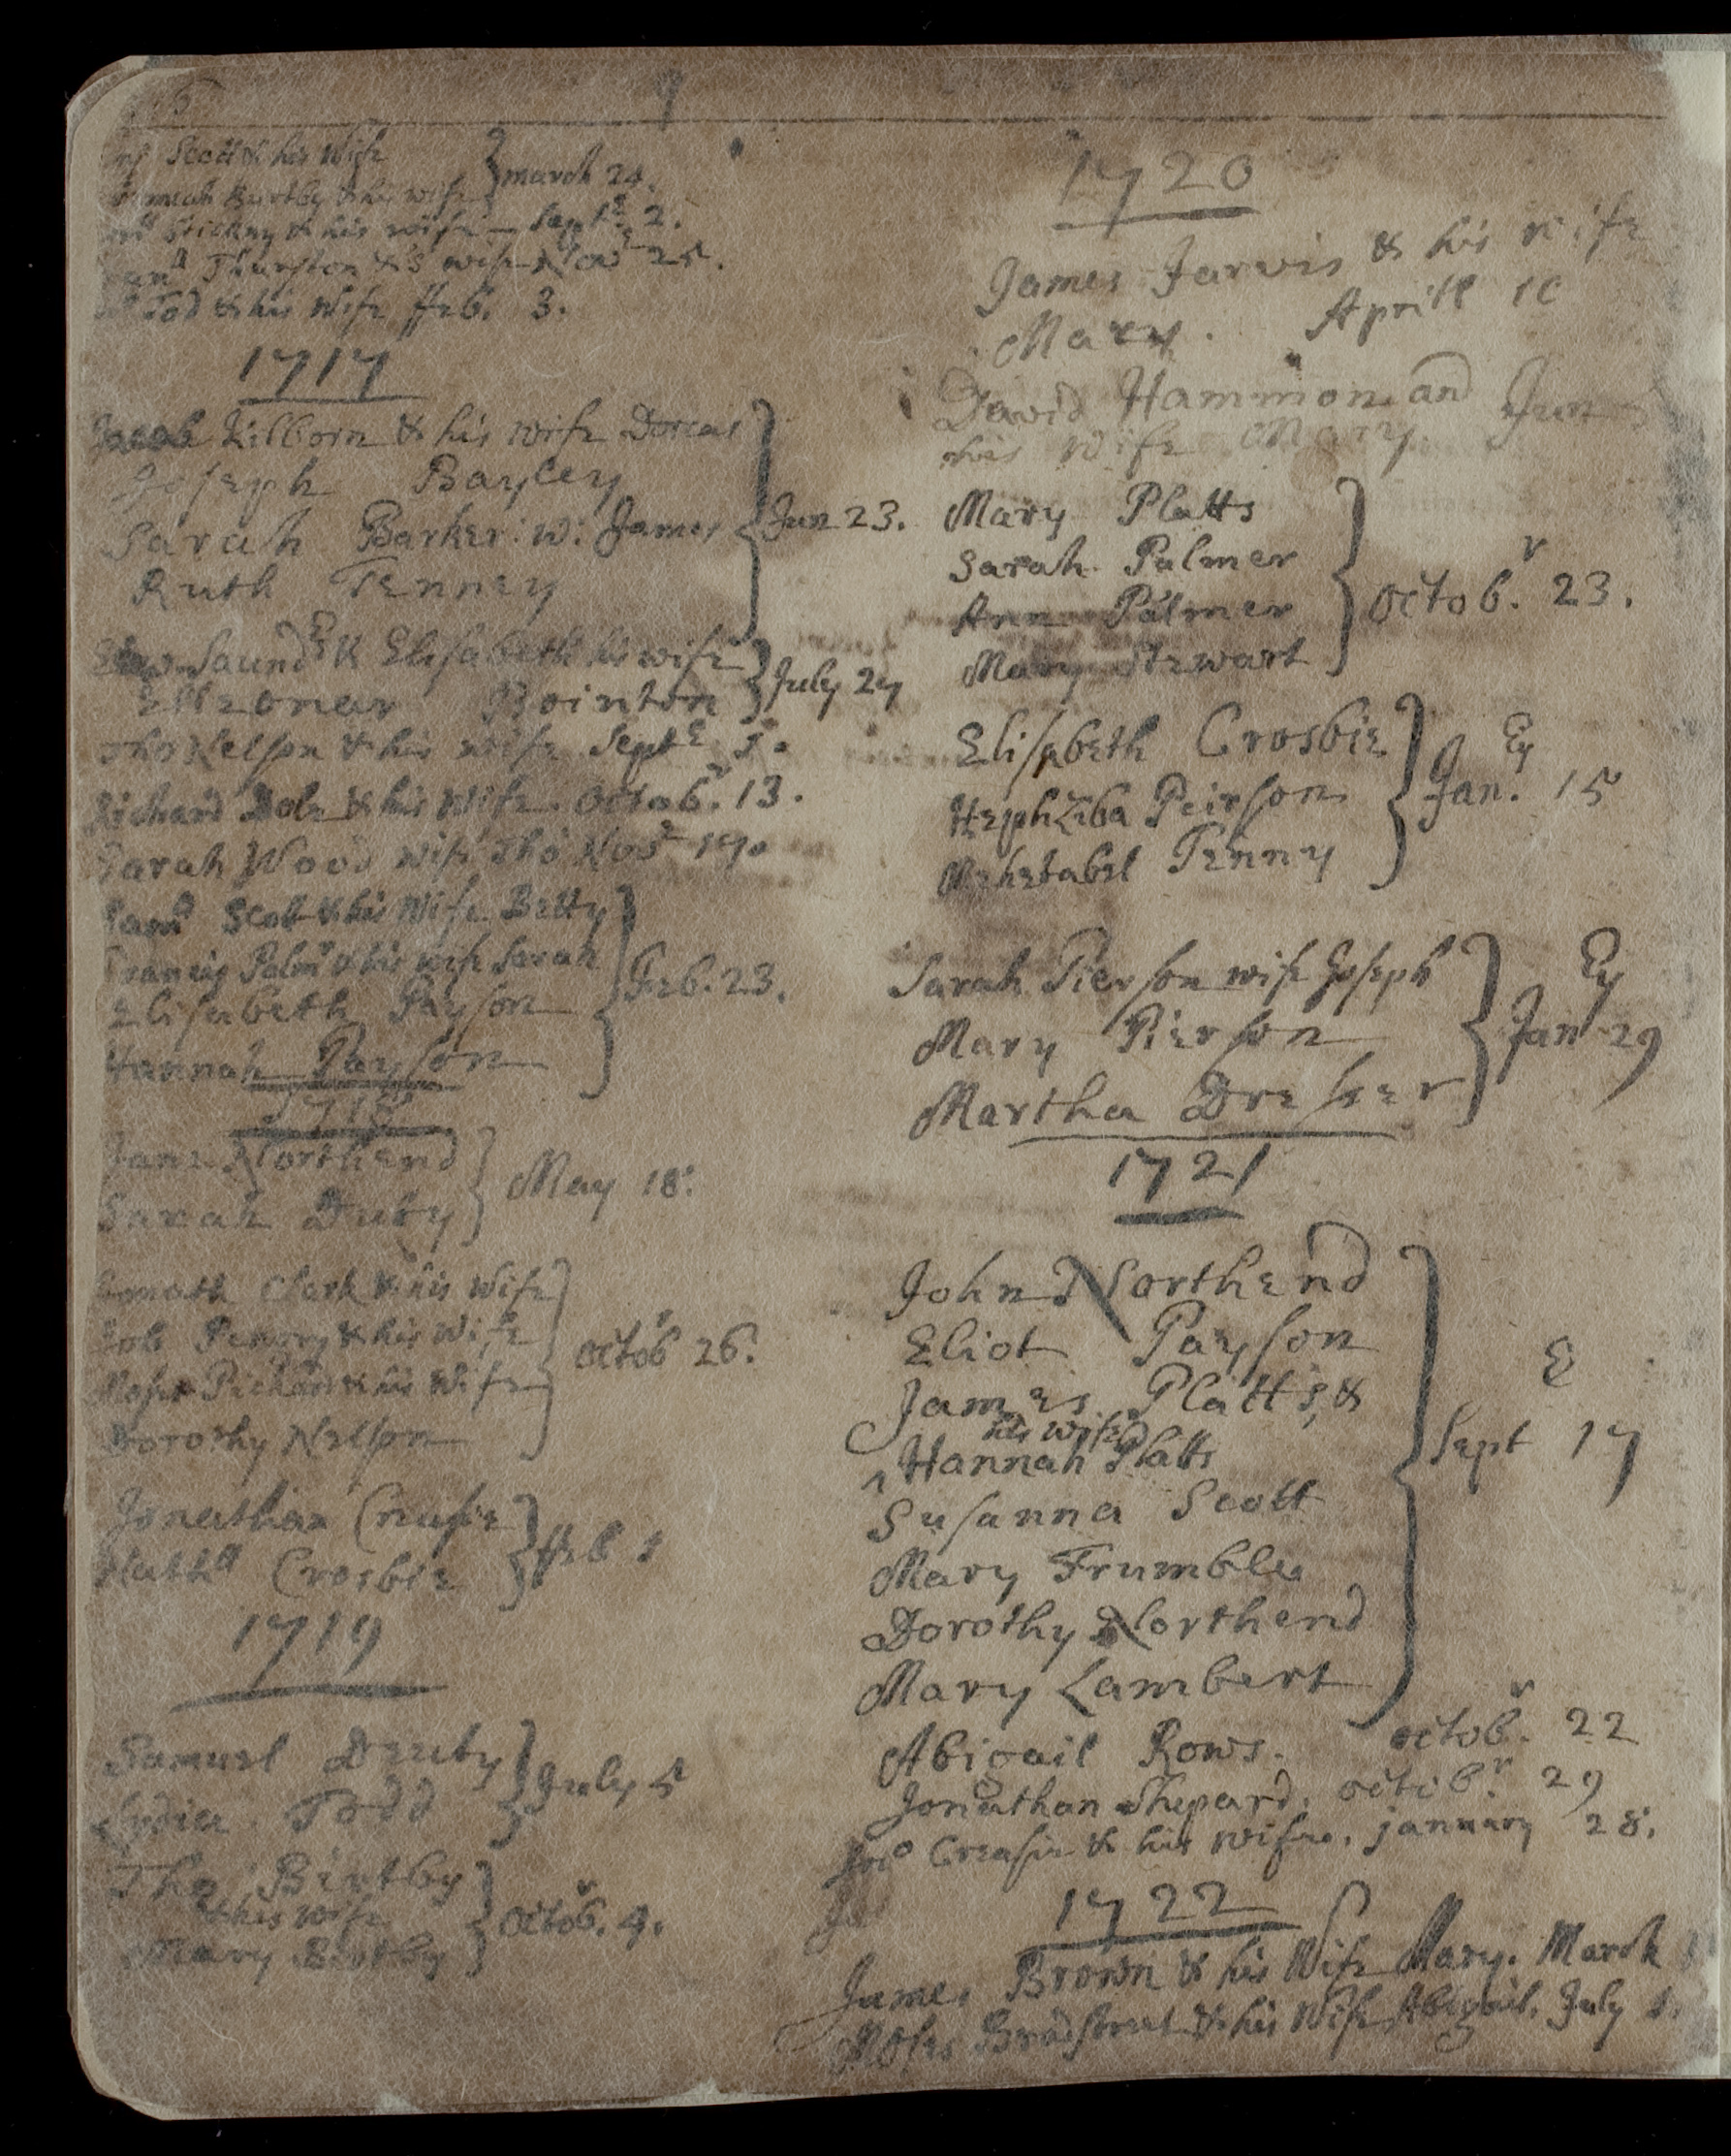 9
Scott & his Wife
& his wife } march 24.
Stickny & his wife – Septr 2.
Thurston & 's wife Novr 25.
Tod & his Wife ffeb. 3.
1717
Jacob Kilborn & his wife Dorcas
Joseph Bayley
Sarah Barker: w: James } Jun 23.
Ruth Tenney
Saundr & Elisabeth his wife
Elleoner Bointon } July 27
Tho Nelson & his wife Septr 1.
Richard Dole & his Wife. Octob.r 13.
Sarah Wood wife Tho Novr 17.
Samll Scott & his Wife Betty
Francis Palmr & his wife Sarah
Elisabeth Payson } Feb. 23.
Hannah Payson
1718
Jane Northend
Sarah Duty } May 18:
Clark & his Wife
Job Pengry & his Wife
Moses & his Wife } octobr 26.
Dorothy Nelson
Jonathan
Nathll Crosbie } ffeb 1
1719
Samuel Deuty
Lydia Todd } July 5
Tho Birtby
& his wife
Mary Birtby } Octob.r 4.
1720
James Jarvis & his wife
Mary. Aprill 10
David Hammon and Jun
his wife Mary
Mary Platts
Sarah Palmer
Ann Palmer } Octob.r 23.
Mary Stewart
Elisabeth Crosbie
Hephziba Peirson } Jan.ey 15
Mehetabel Tenny
Sarah Pierson wife Joseph
Mary Pierson } Janey 29
Martha Dresser
1721
John Northend
Eliot Payson
James Platts, &
his wife
^ Hannah Platts } Sept 17
Susanna Scott
Mary Trumble
Dorothy Northend
Mary Lambert
Abigail Rows. octob.r 22
Jonathan Shepard. octob.r 29
Jno Creasie & his wife. january 28.
1722
James Brown & his Wife Mary. March
Moses Bradstreet & his Wife Abigail. July 1.